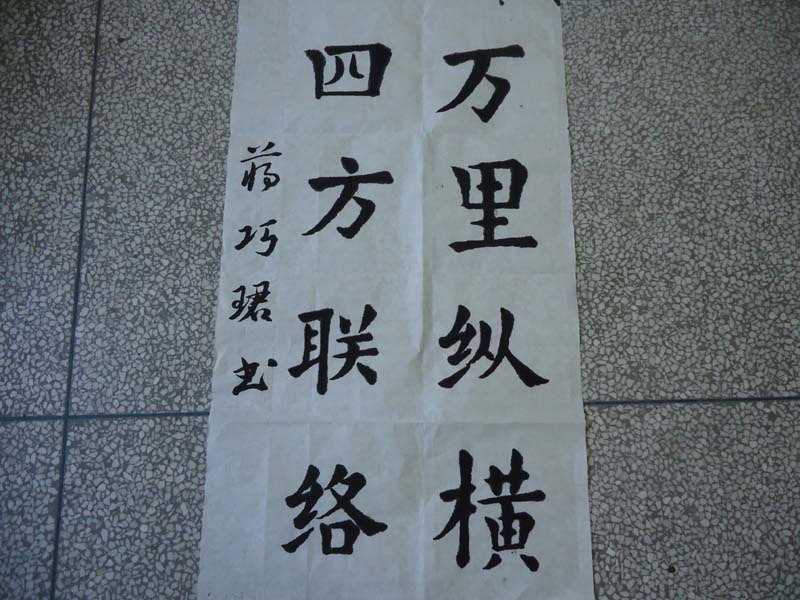 万里纵横
四方联络
蒋巧珺书